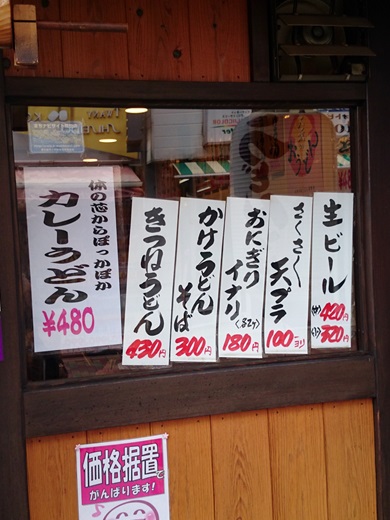 生ビール
(中)420円
(小)320円
さくさく
天プラ
100ヨリ
おにぎり
イナリ
(各2ケ)
180円
かけうどん
そば
300円
きつねうどん
430円
体の芯からぽっかぽか
カレーうどん
¥480
価格据置で
がんばります!